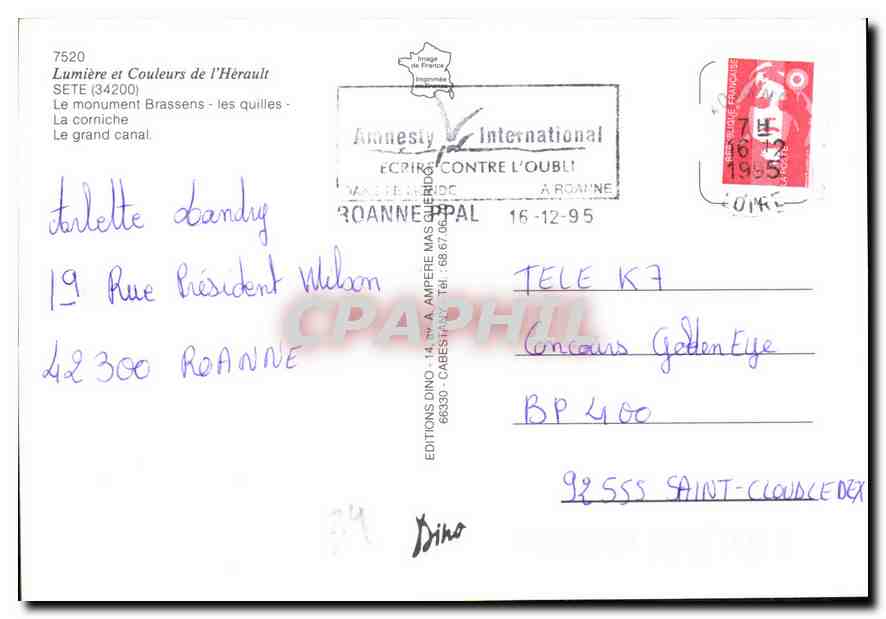 7520
Lumière et Couleurs de l'Hérault
SETE (34200)
Le monument Brassens - les quilles -
La corniche
Le grand canal.
Image
de France
Imprimée
en France
Amnesty International
ECRIRE CONTRE L'OUBLI
DANS LE MONDE A ROANNE
ROANNE PPAL 16-12-95
REPUBLIQUE FRANÇAISE
LA POSTE
7 H
16 -12
1995
LOIRE
Arlette Landry
19 Rue Président Wilson
42300 ROANNE
EDITIONS DINO - 14, av. A. AMPERE MAS GUERIDO
66330 - CABESTANY - Tél. : 68.67.06
CPAPHIL
TELE K7
Concours GoldenEye
BP 400
92555 SAINT-CLOUD CEDEX
34
Dino